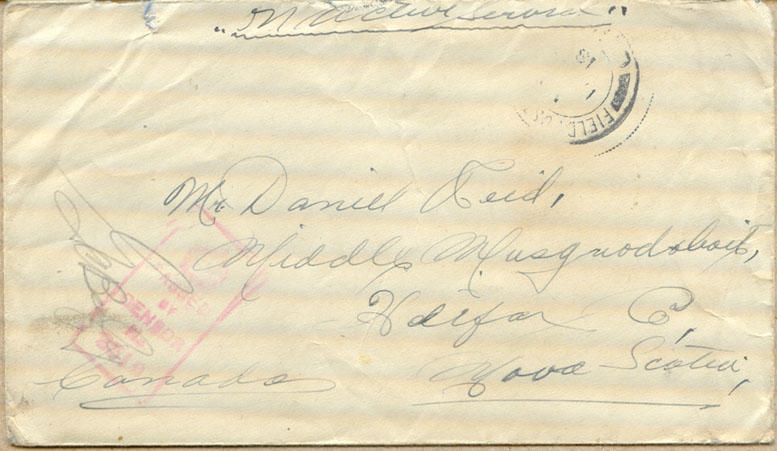 "On Active Service"
FIELD
Mr. Daniel Reid,
Middle Musquodoboit,
Halifax Co,
Nova Scotia,
Canada
PASSED
BY
CENSOR